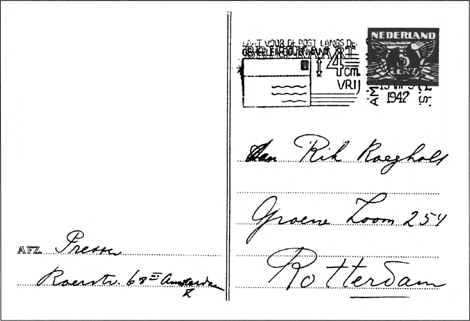 LAAT VOOR DE POST LANGS DE
GEHEELEN BOVENKANT
4 cm
VRIJ
NEDERLAND
5
CENT
1942
Aan Rik Roeghols
Groene Zoom 254
Rotterdam
AFZ. Presser
Roerstr. 68 III Amsterdam
Z